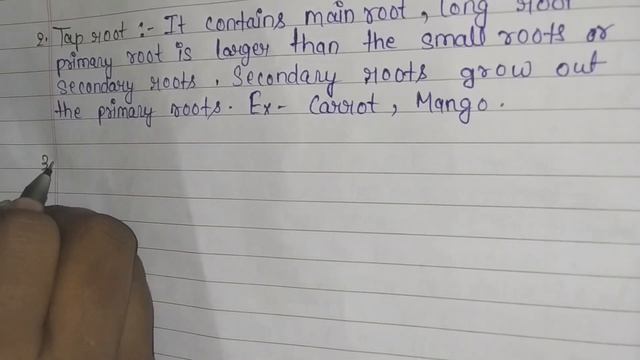 2. Tap root :- It contains main root, long root
primary root is larger than the small roots or
Secondary roots. Secondary roots grow out
the primary roots. Ex- Carrot, Mango.
3